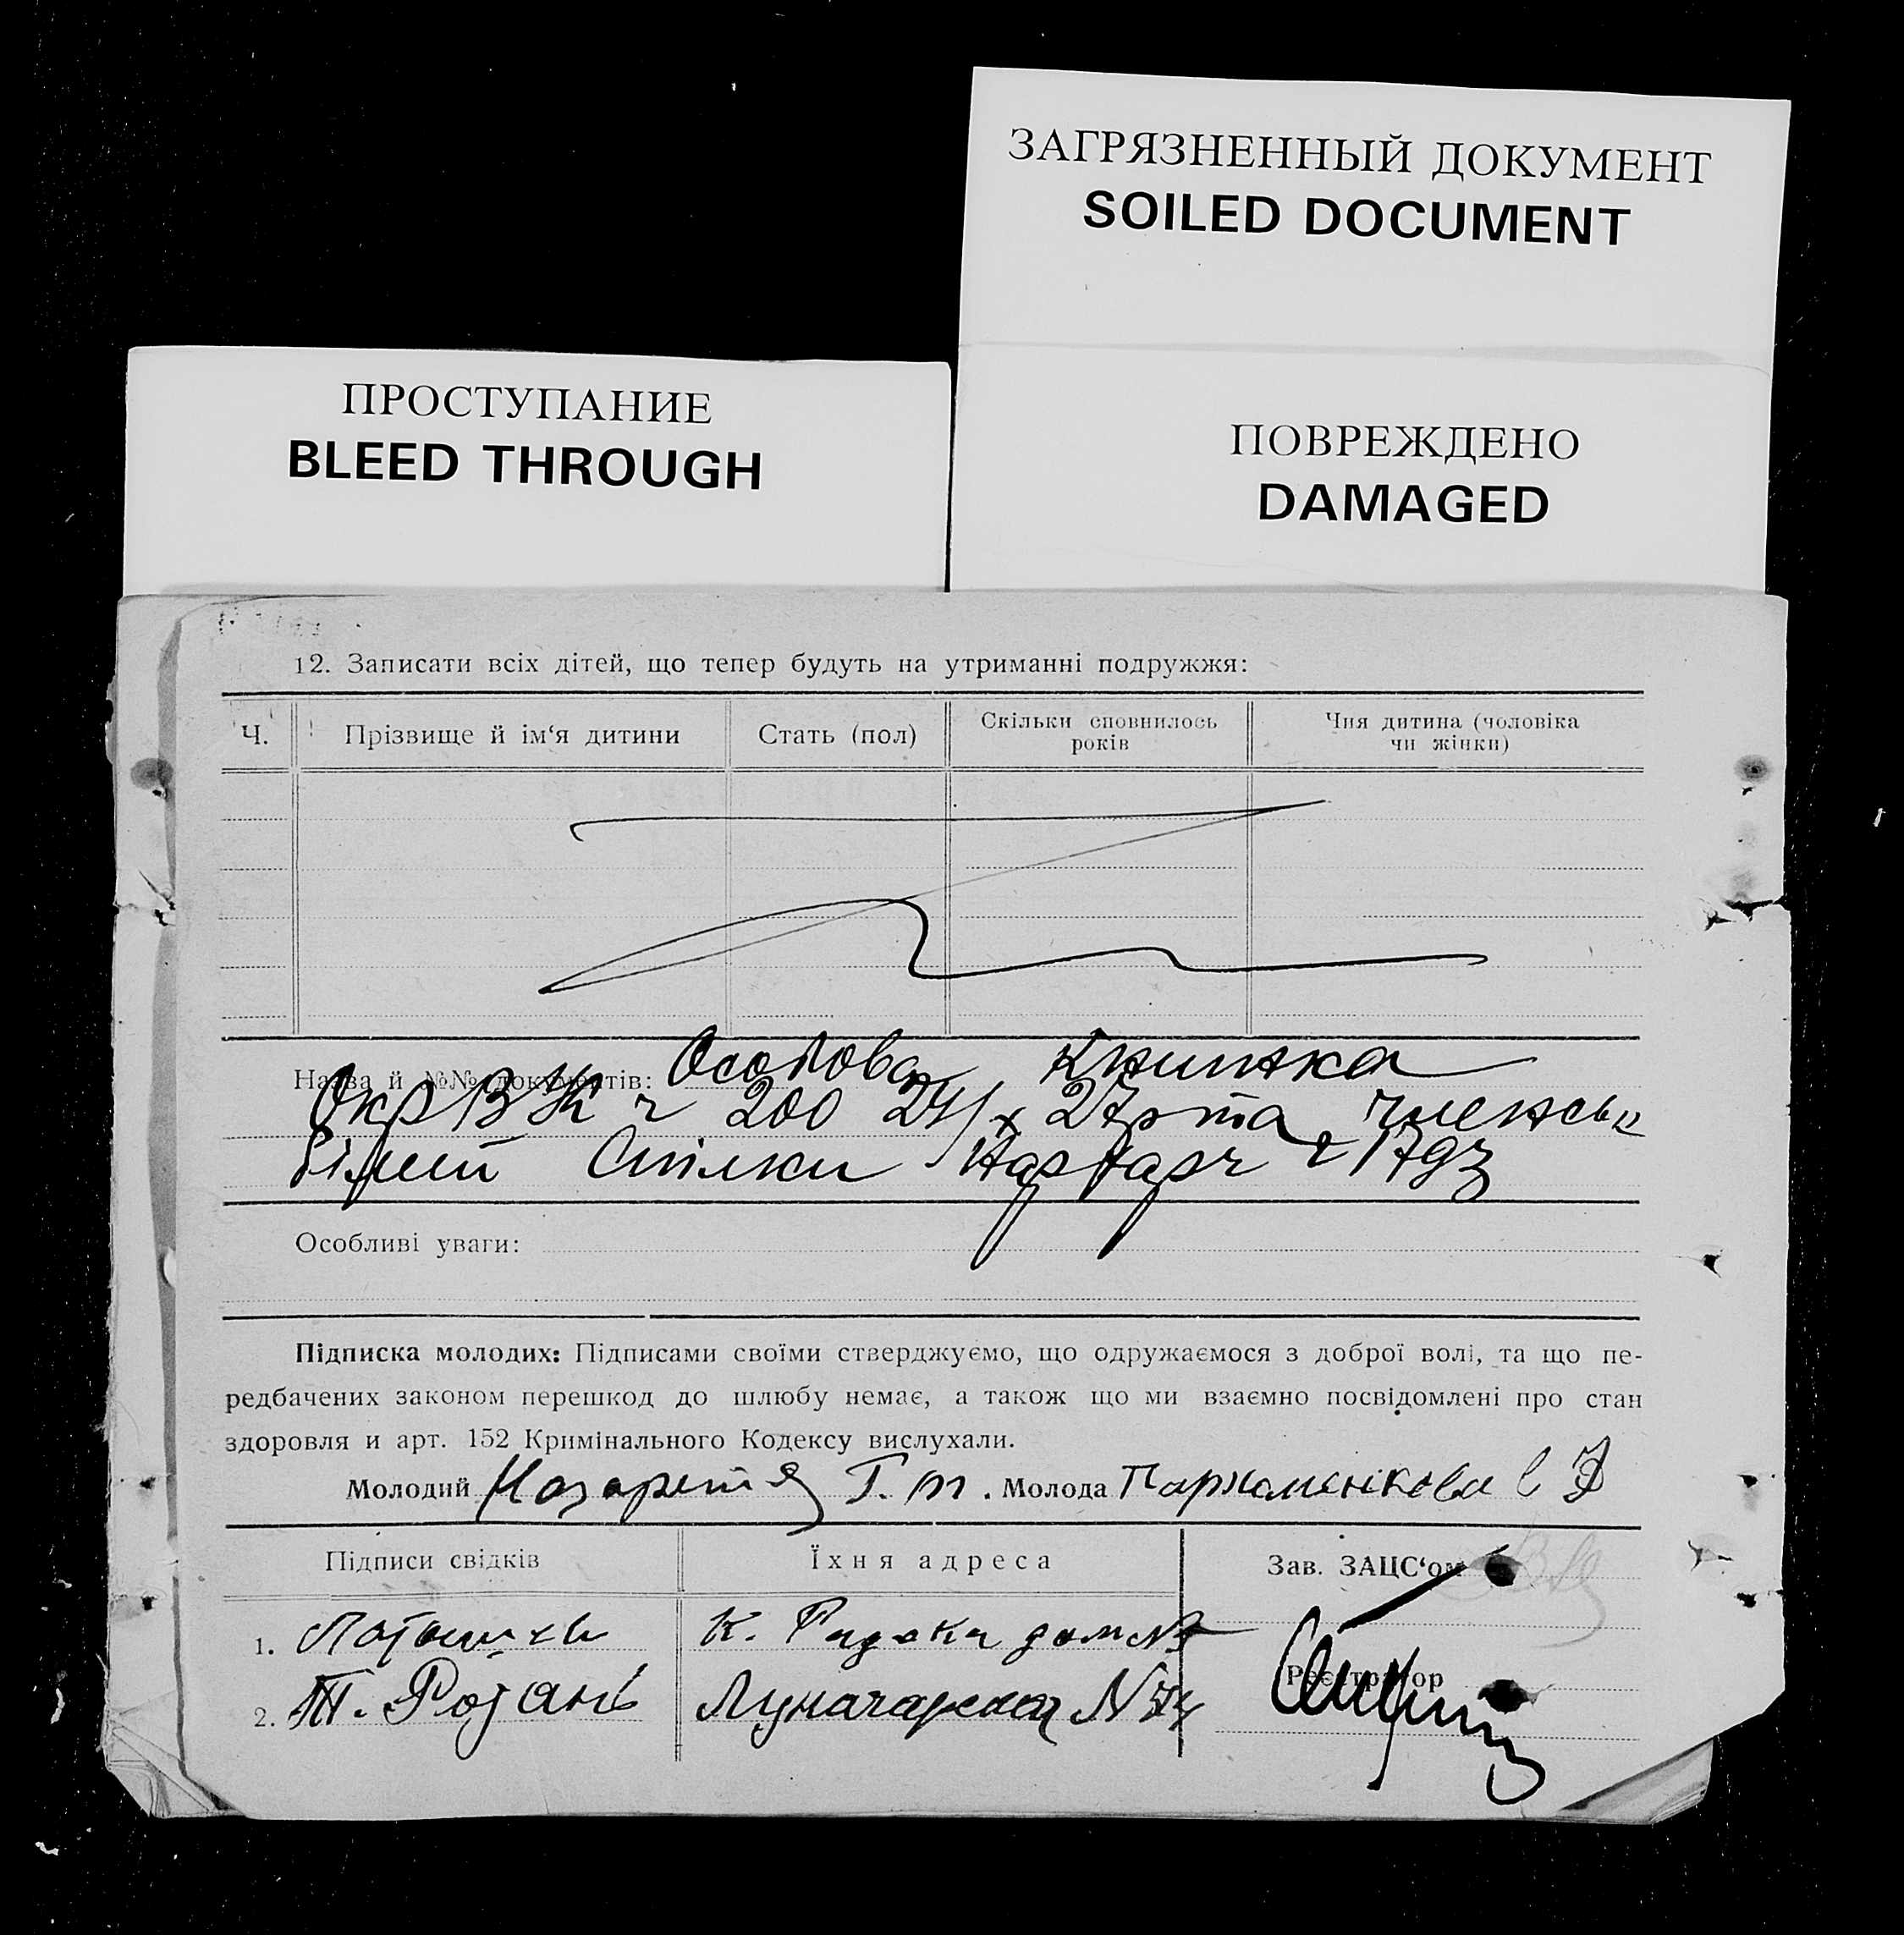 ЗАГРЯЗНЕННЫЙ ДОКУМЕНТ
SOILED DOCUMENT
ПРОСТУПАНИЕ
BLEED THROUGH
ПОВРЕЖДЕНО
DAMAGED
12. Записати всіх дітей, що тепер будуть на утриманні подружжя:
Ч. Прізвище й ім‘я дитини Стать (пол) Скільки сповнилось років Чия дитина (чоловіка чи жінки)
Назва й №№ документів: Особова книжка
ОкрВК ч 200 24/х 27р та членськ
білет Спілки
Особливі уваги:
Підписка молодих: Підписами своїми стверджуємо, що одружаємося з доброї волі, та що пе-
редбачених законом перешкод до шлюбу немає, а також що ми взаємно посвідомлені про стан
здоровля и арт. 152 Кримінального Кодексу вислухали.
Молодий Г. Молода Пархоменкова
Підписи свідків Їхня адреса Зав. ЗАЦС‘ом
1. К. дом №
Реєстратор
2. Т. Луначарская №